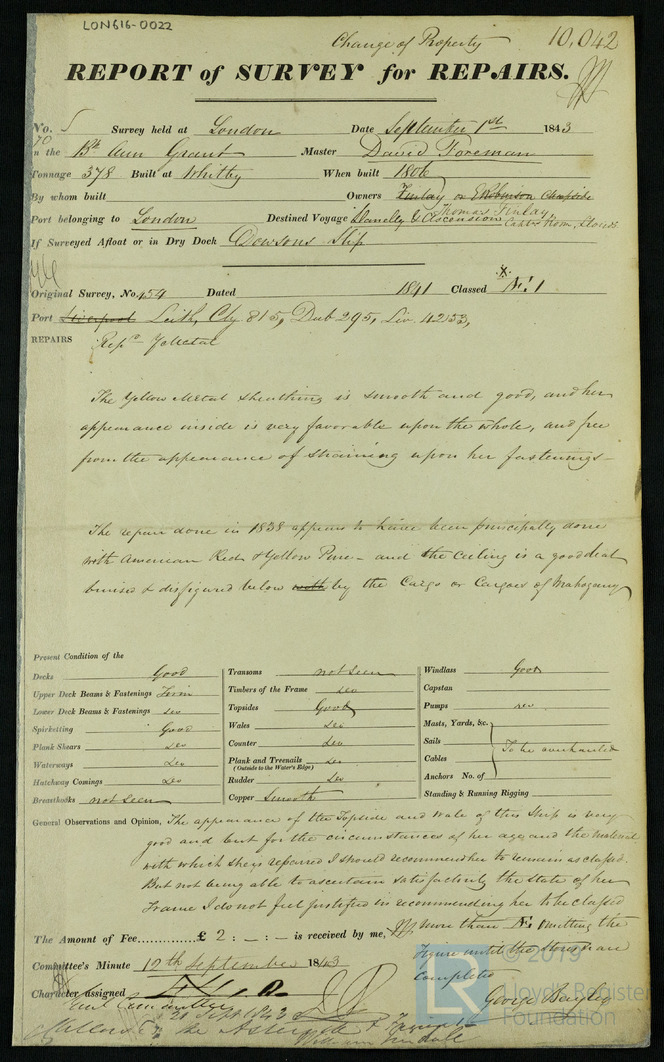 LON616-0022
Change of Property 10,042
REPORT of SURVEY for REPAIRS.
No. 5 Survey held at London Date September 1st 1843
70
on the Bk Ann Grant Master David Foreman
Tonnage 378 Built at Whitby When built 1806
By whom built Owners Finlay or E Robinson Cheapside
Thomas Finlay,
Port belonging to London Destined Voyage Llanelly & Ascension
If Surveyed Afloat or in Dry Dock Dowsons Slip
Original Survey, No. 454 Dated 1841 Classed Æ 1
Port Liverpool Leith, Cly 815, Dub 295, Liv. 4253,
REPAIRS Reps YMetal
The Yellow Metal Sheathing is smooth and good, and her
appearance inside is very favorable upon the whole, and free
from the appearance of straining upon her fastenings—
The repair done in 1838 appears to have been principally done
with American Red & Yellow Pine – and the ceiling is a good deal
bruised & disfigured below with by the Cargo or Cargoes of Mahogany
Present Condition of the
Decks Good
Upper Deck Beams & Fastenings Firm
Lower Deck Beams & Fastenings Do
Spirketting Good
Plank Shears Do
Waterways Do
Hatchway Comings Do
Breasthooks not seen
Transoms not seen
Timbers of the Frame Do
Topsides Good
Wales Do
Counter Do
Plank and Treenails Do
(Outside to the Water's Edge)
Rudder Do
Copper Smooth
Windlass Good
Capstan
Pumps Do
Masts, Yards, &c.
Sails
Cables
To be overhauled
Anchors No. of
Standing & Running Rigging
General Observations and Opinion, The appearance of the Topside and Wale of this Ship is very
good and but for the circumstances of her age and the material
with which she is repaired I should recommend her to remain as classed.
But not being able to ascertain satisfactorily the state of her
Frame I do not feel justified in recommending her to be classed
more than Æ omitting the
Figure until the Stores are
completed
The Amount of Fee £ 2 : – : – is received by me,
George Bayley
Committee's Minute 12th September 1843
Character assigned
21 Sept 1843
William
© 2019
LR Lloyd's Register
Foundation